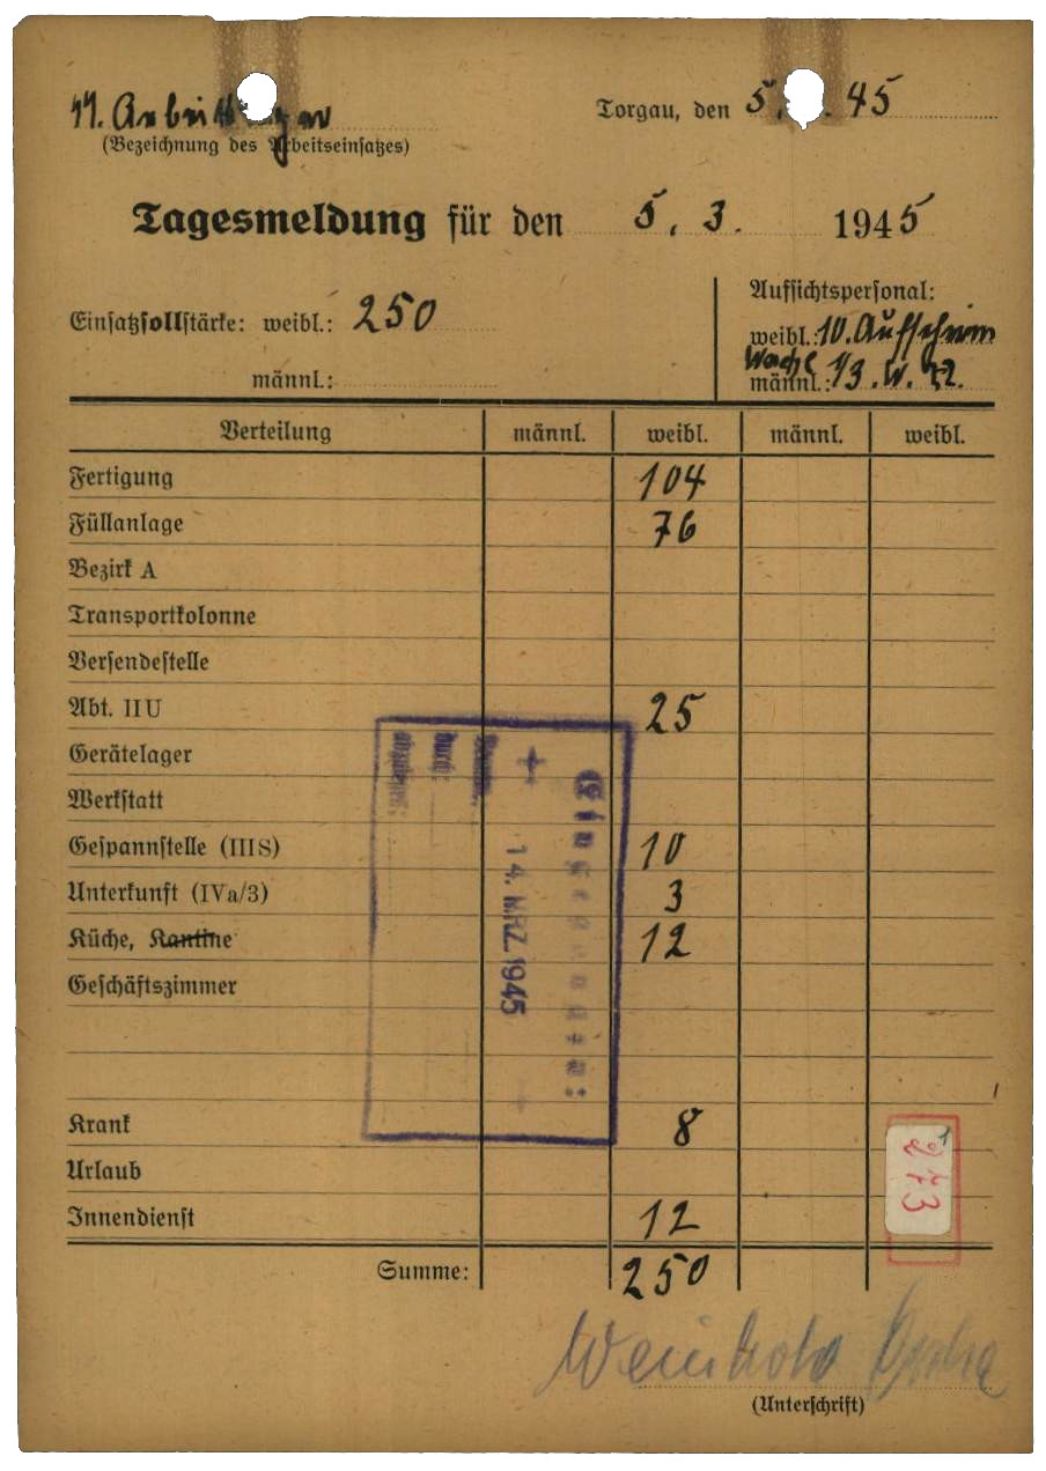 44. Arbeitslager
Torgau, den 5. . 45
(Bezeichnung des Arbeitseinsatzes)
Tagesmeldung für den 5. 3. 1945
Aufsichtspersonal:
Einsatzsollstärke: weibl.: 250
weibl.: 10. Aufseherinn
Wache
männl.:
männl.: 1/3. W. 22.
Verteilung männl. weibl. männl. weibl.
Fertigung 104
Füllanlage 76
Bezirk A
Transportkolonne
Versendestelle
Abt. II U 25
Gerätelager
Werkstatt
Gespannstelle (III S) 10
Unterkunft (IV a/3) 3
Küche, Kantine 12
Geschäftszimmer
Eingegangen:
14. MRZ. 1945
durch:
Krank 8
Urlaub
Innendienst 12
273
Summe: 250
Weinhold
(Unterschrift)